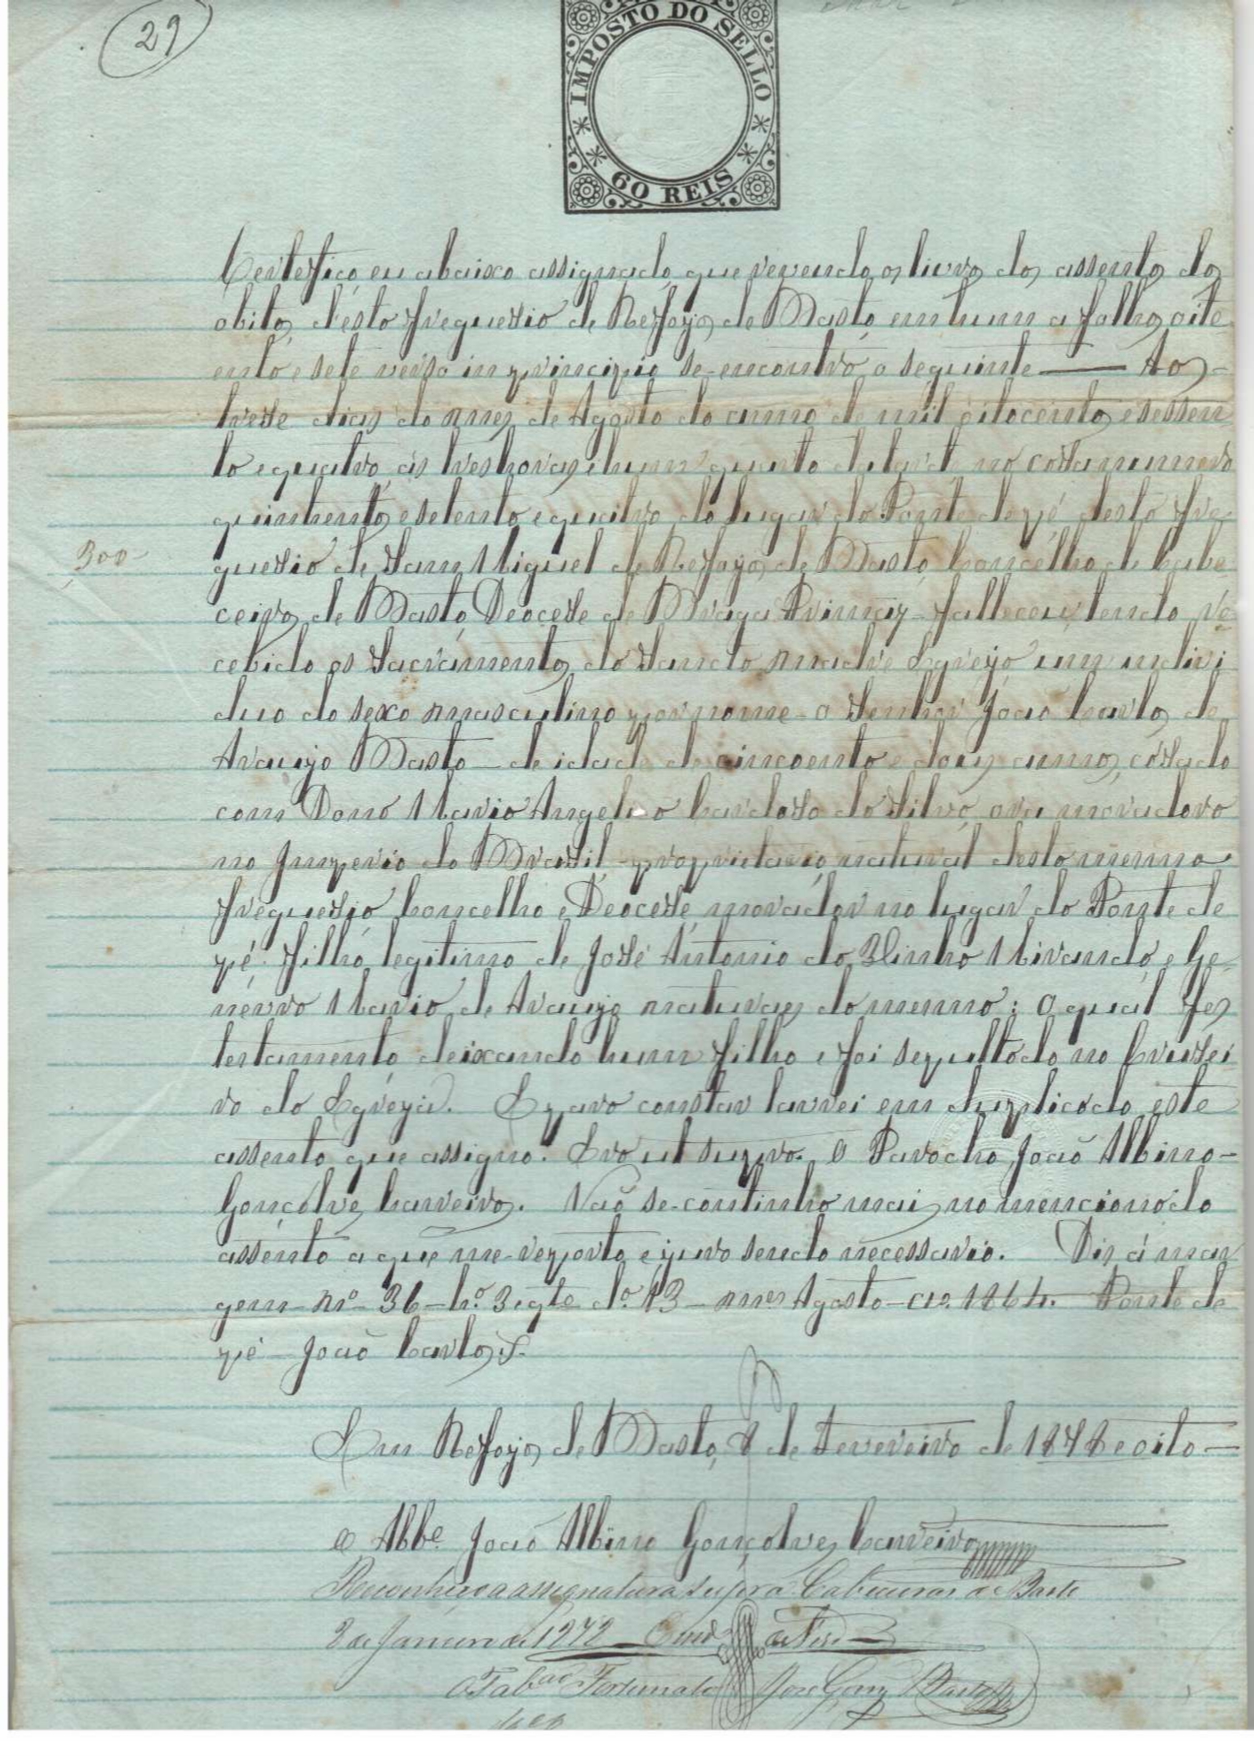 29
IMPOSTO DO SELLO
60 REIS
Certefico eu abaixo assignado que vevendo os livro dos assentos dos
obitos d'esta freguesia de Refojos de Basto em hum a folhas oite
enta e sete verso in principio se encontra o seguinte — Aos
treze dias do mes de Agosto do anno de mil oitocentos e sessen
ta e quatro, ás tres horas e hum quarto da tarde no cosa numero
quinhentos e setenta e quatro do lugar do Ponte de pé desta fre
guesia de Sam Miguel de Refojos de Basto, Concelho de Cabe
300
ceiras de Basto, Deocese de Braga Primaz - falleceu tendo re
cebido os Sacramentos da Sancta madre Egreja um indivi
duo do sexo masculino por nome - o Senhor João Carlos de
Araujo Basto - de idade de cincoenta e dous annos, casado
com Dona Maria Angelica Cardosa da Silva, ora moradora
no Imperio do Brasil - proprietario, natural desta mesma
freguesia, Concelho e Deocese morador no lugar do Ponte de
pé. filho legitimo de José Antonio do Minho Miranda, e Ge
neroza Maria de Araujo naturaes do mesmo; o qual fez
testamento deixando hum filho e foi sepultado no Crusei
ro do Egreja. E para constar lavrei em duplicado este
assento que assigno. Era ut supra. O Parocho João Albino
Gonçalves Carneiro. Não se continha mais no mencionado
assento a que me reporto e juro sendo necessario. Diz á mar
gem nº 36 - dº 13 - mes Agosto - 1864. Ponte de
pé - João Carlos
Em Refojos de Basto, 8 de Fevereiro de 1878 e oito
O Abbe. João Albino Gonçalves Carneiro
Reconheço a assignatura supra Cabeceiras de Basto
de Janeiro de 1872
O Tabam Fortunato José Gonz Basto